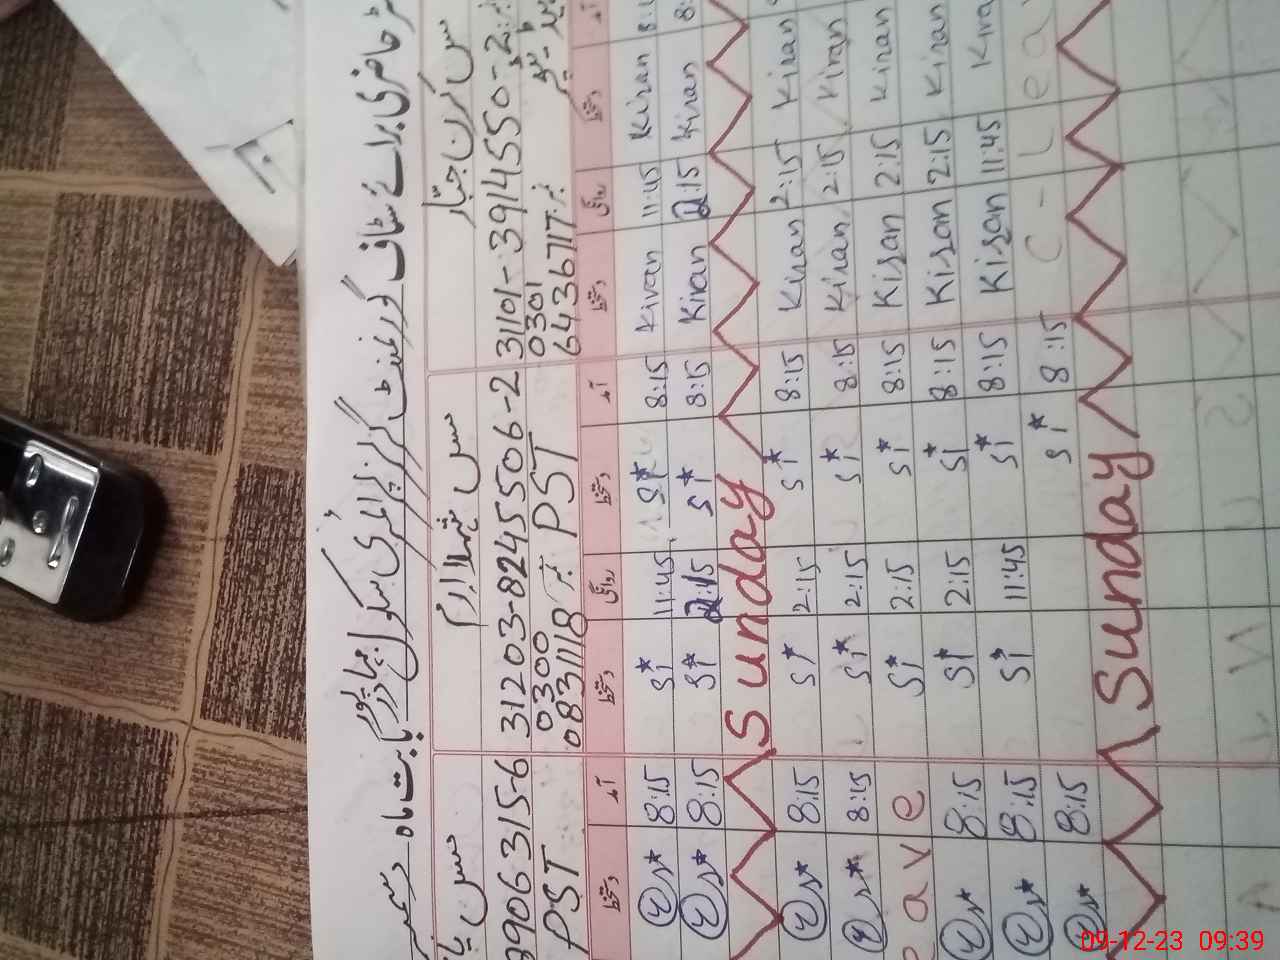 حاضری برائے سٹاف گورنمنٹ گرلز پرائمری سکول بابت ماہ دسمبر
مس کرن جبّار مس شہلا ارم مس
3906315-6 31203-8245506-2 31101-3914550-2
0300 0301
PST 0831118 PST 6436717
دستخط آمد دستخط روانگی دستخط آمد دستخط روانگی دستخط
8:15 S* 11:45 S* 8:15 Kiran 11:45 Kiran
8:15 S* 2:15 S* 8:15 Kiran 2:15 Kiran
Sunday
8:15 S* 2:15 S* 8:15 Kiran 2:15 Kiran
8:15 S* 2:15 S* 8:15 Kiran 2:15 Kiran
eave S* 2:15 S* 8:15 Kiran 2:15 Kiran
8:15 S* 2:15 S* 8:15 Kiran 2:15 Kiran
8:15 S* 11:45 S* 8:15 Kiran 11:45 Kira
8:15 S* 8:15 C-Lea
Sunday
09-12-23 09:39